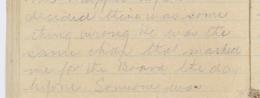 decided there was some
thing wrong he was the
same chap that marked
me for the Board the day
before. Someone was